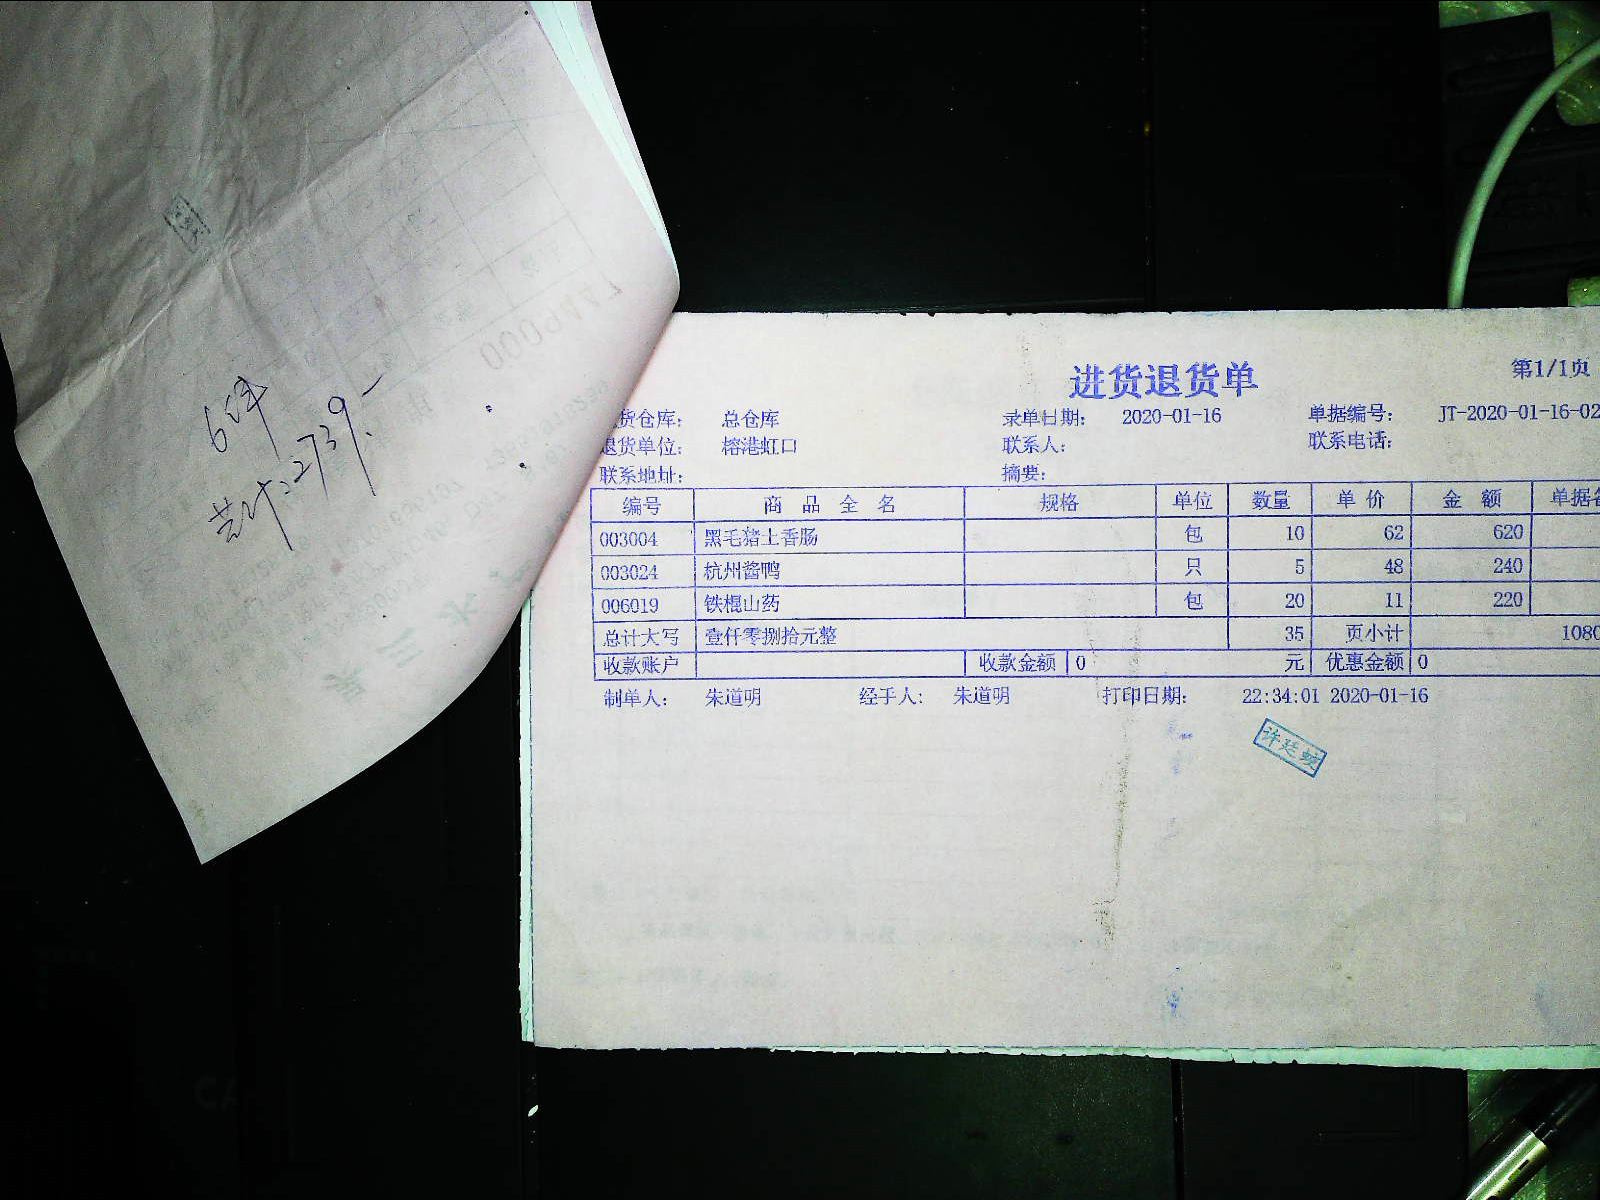 进货退货单
第1/1页
货仓库: 总仓库 录单日期: 2020-01-16 单据编号: JT-2020-01-16-02
退货单位: 榕港虹口 联系人: 联系电话:
联系地址: 摘要:
编号 商品全名 规格 单位 数量 单价 金额 单据备
003004 黑毛猪土香肠 包 10 62 620
003024 杭州酱鸭 只 5 48 240
006019 铁棍山药 包 20 11 220
总计大写 壹仟零捌拾元整 35 页小计 1080
收款账户 收款金额 0 元 优惠金额 0
制单人: 朱道明 经手人: 朱道明 打印日期: 22:34:01 2020-01-16
2739.-